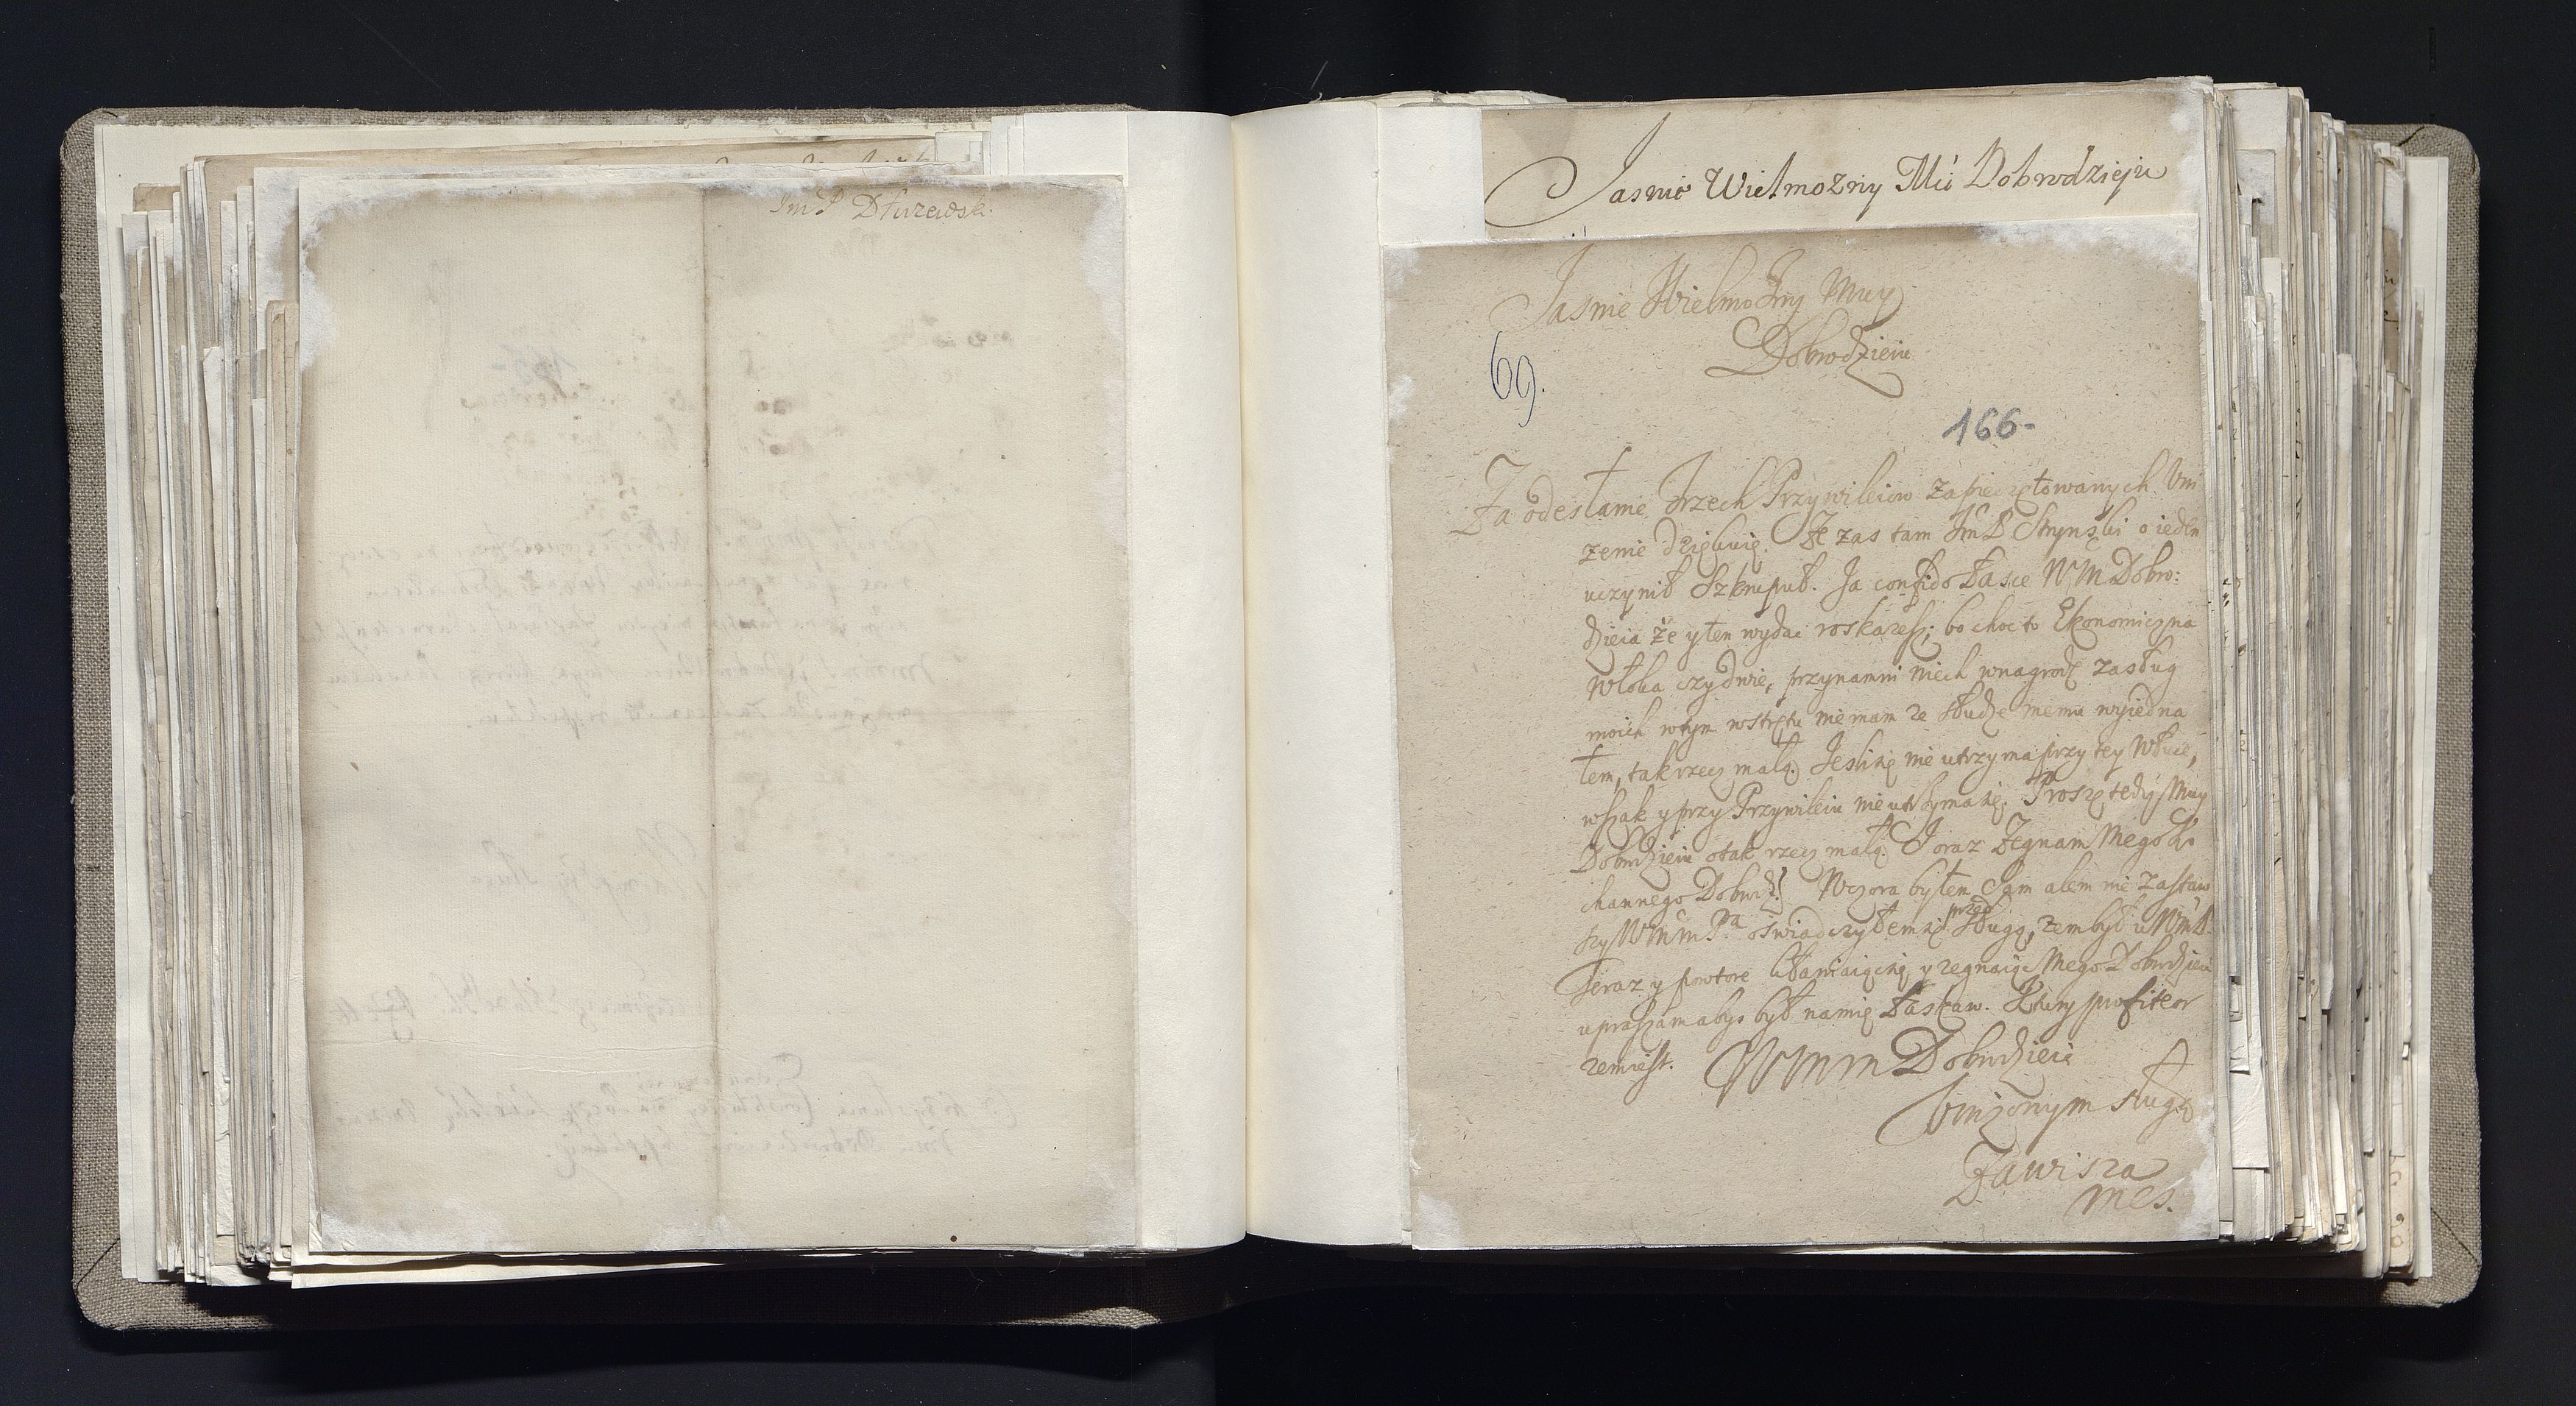 Im P Dłużewsk.
Jasnie Wielmozny Mći Dobrodzieju
Jasnie Wielmożny Muy
Dobrodzieiu
69.
166-
Za odesłanie Trzech Przywileiow zapieczętowanych Vni
zenie dziękuię. Że zas tam Im P o ieden
uczynił Szkrupuł. Ja confido Łasce WM Dobro:
dzieia że y ten wydac roskażesz; bo choc to Ekonomiczna
Włoka czy dwie, przynamni niech wnagrodę zasług
moich wtym wstrętu nie mam ze słudze memu wyiedna
łem, tak rzecz małą. Jesli się nie utrzyma przy tey Włuce,
wszak y przy Przywileiu nie utrzyma się. Proszę tedy Muy
Dobrodzieiu o tak rzecz małą. Teraz Żegnam Mego Ko
channego Dobrodz. Wczora byłem Sam alem nie zastaw
szy WMM Pa oswiadczyłem się przed Sługą, zem był u WM
Teraz y powtore kłaniaiąc się y zegnaiąc Mego Dobrodzieia
upraszam abys był na mię Łaskaw. Ktury profiteor
zemiest. WMM Dobrodzieia
Vniżonym sługą
Zawisza
MES.